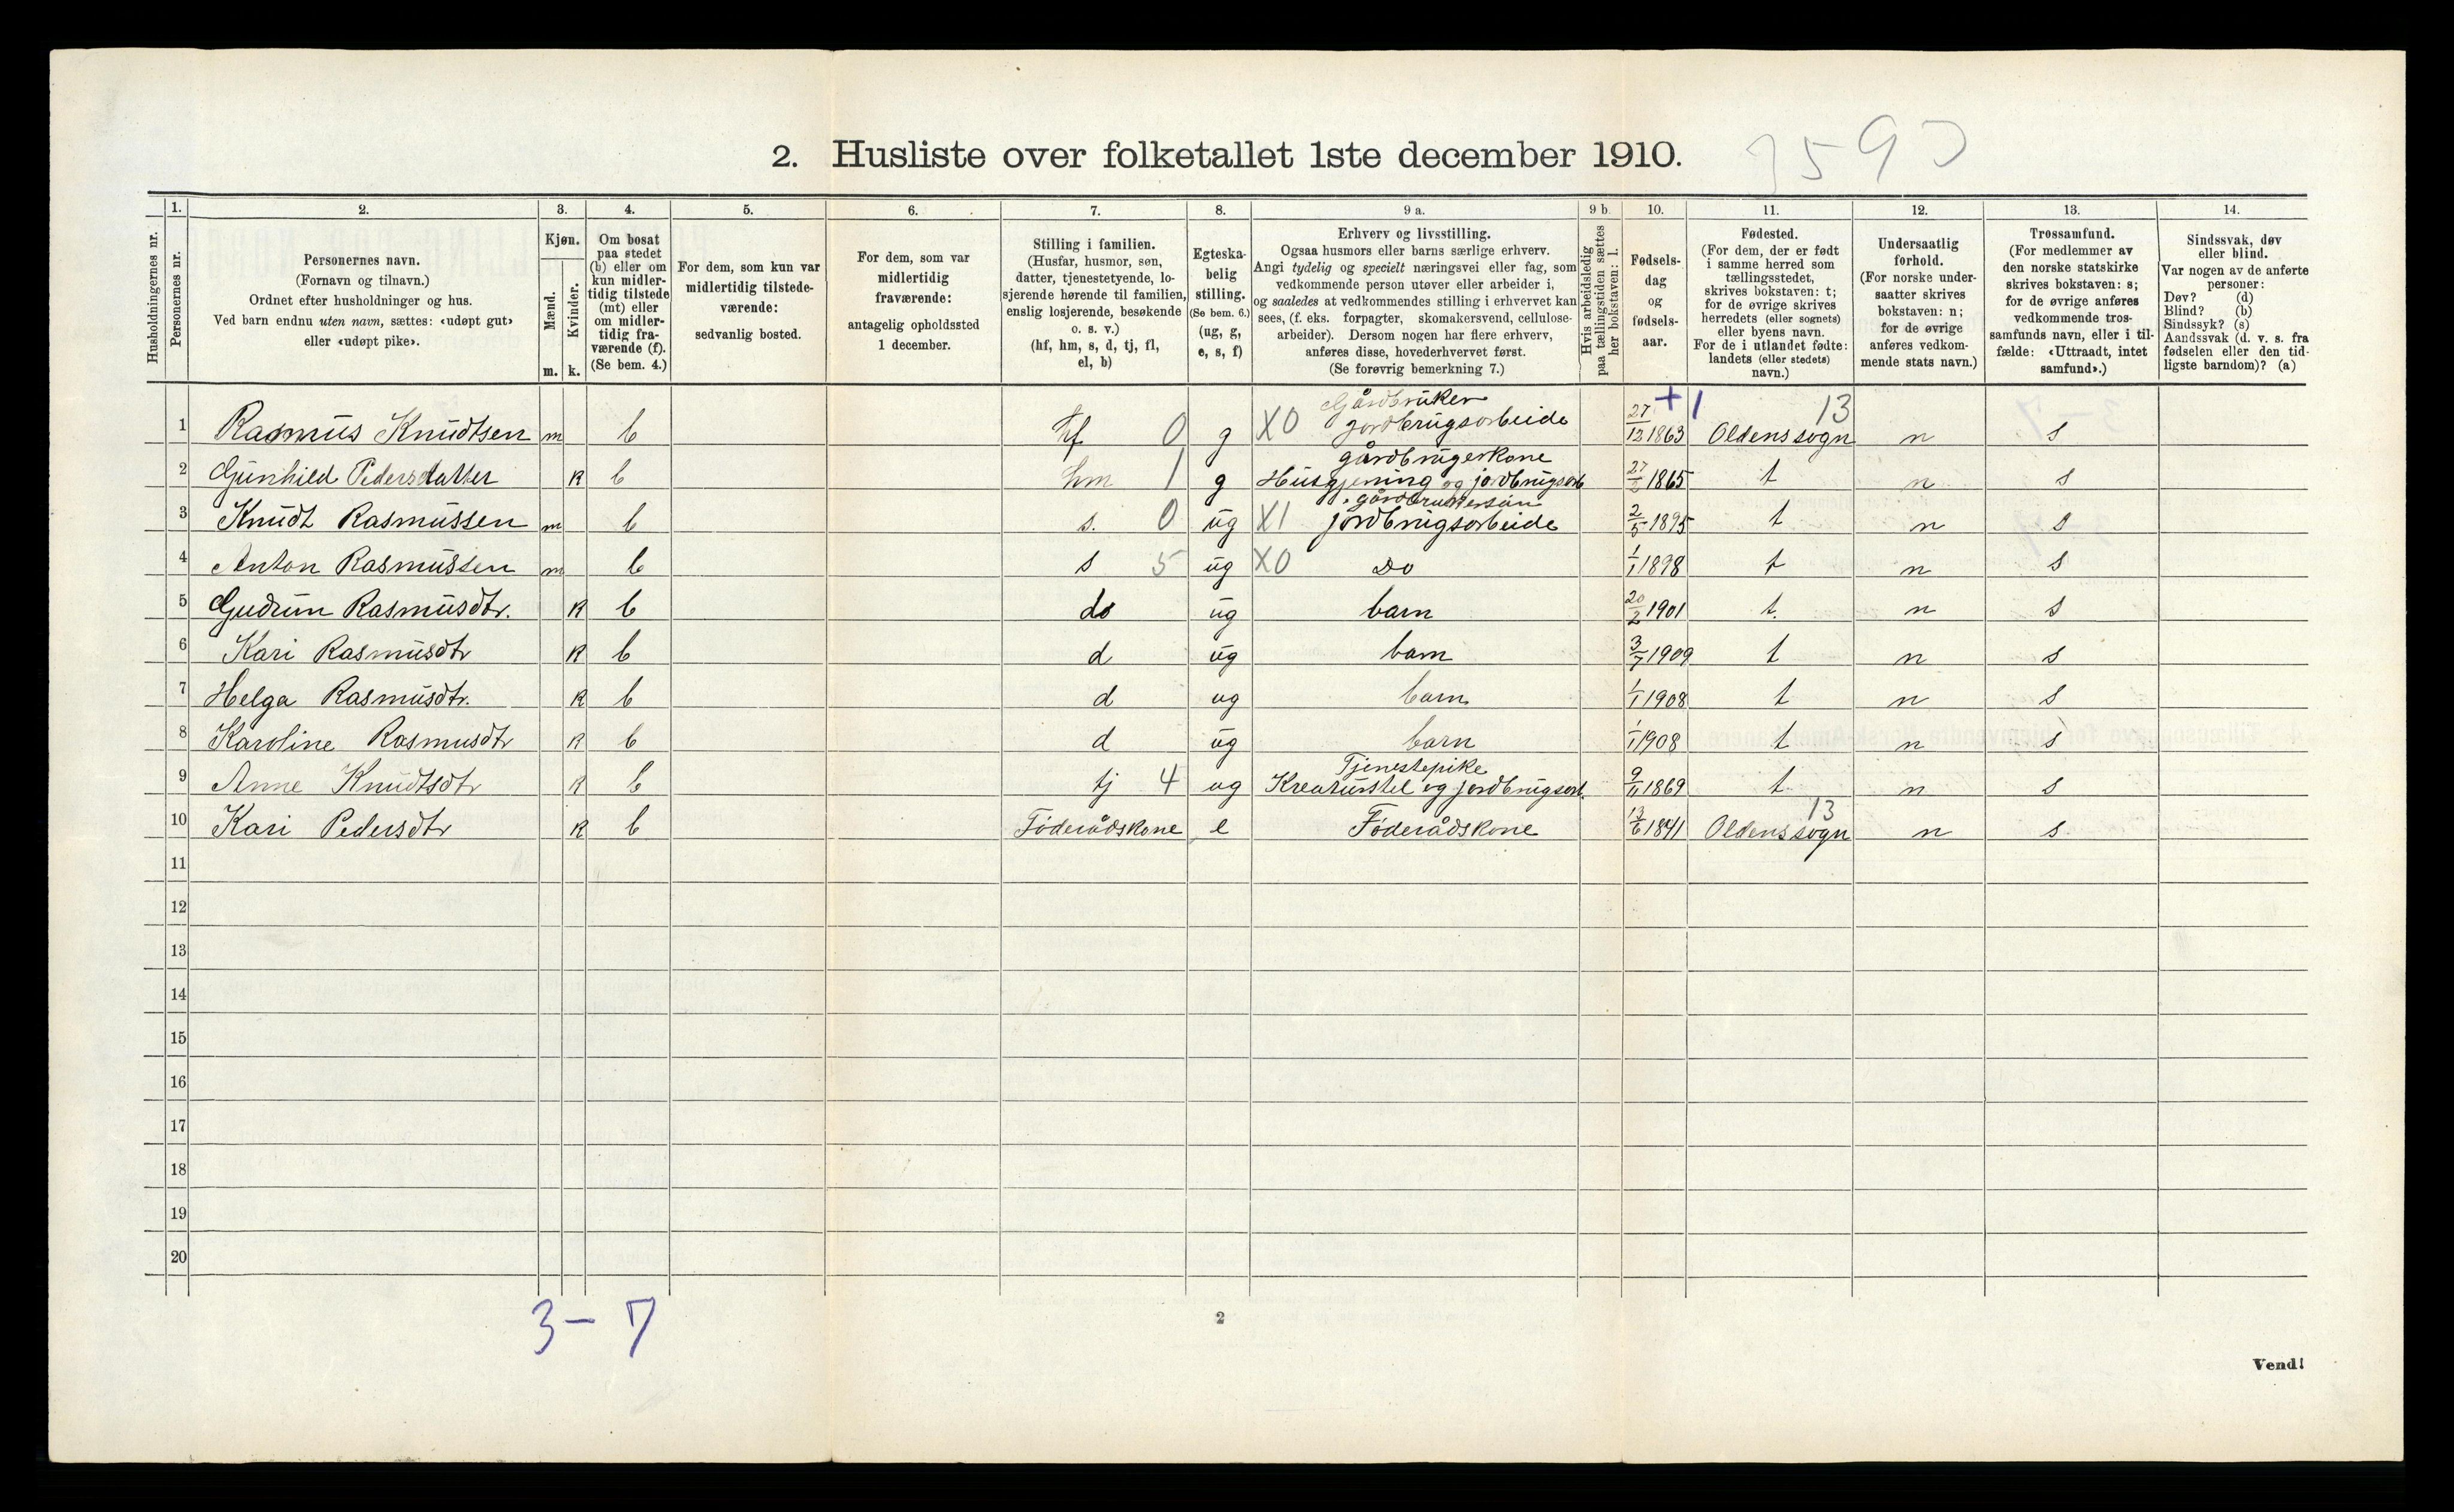 2. Husliste over folketallet 1ste december 1910.
3590
Husholdningernes nr.
1.
Personernes nr.
2.
Personernes navn.
(Fornavn og tilnavn.)
Ordnet efter husholdninger og hus.
Ved barn endnu uten navn, sættes: «udøpt gut»
eller «udøpt pike».
3.
Kjøn.
Mænd.
Kvinder.
m. k.
4.
Om bosat
paa stedet
(b) eller om
kun midler-
tidig tilstede
(mt) eller
om midler-
tidig fra-
værende (f).
(Se bem. 4.)
5.
For dem, som kun var
midlertidig tilstede-
værende:
sedvanlig bosted.
6.
For dem, som var
midlertidig
fraværende:
antagelig opholdssted
1 december.
7.
Stilling i familien.
(Husfar, husmor, søn,
datter, tjenestetyende, lo-
sjerende hørende til familien,
enslig losjerende, besøkende
o. s. v.)
(hf, hm, s, d, tj, fl,
el, b)
8.
Egteska-
belig
stilling.
(Se bem. 6.)
(ug, g,
e, s, f)
9 a.
Erhverv og livsstilling.
Ogsaa husmors eller barns særlige erhverv.
Angi tydelig og specielt næringsvei eller fag, som
vedkommende person utøver eller arbeider i,
og saaledes at vedkommendes stilling i erhvervet kan
sees, (f. eks. forpagter, skomakersvend, cellulose-
arbeider). Dersom nogen har flere erhverv,
anføres disse, hovederhvervet først.
(Se forøvrig bemerkning 7.)
9 b.
Hvis arbeidsledig
paa tællingstiden sættes
her bokstaven: l.
10.
Fødsels-
dag
og
fødsels-
aar.
11.
Fødested.
(For dem, der er født
i samme herred som
tællingsstedet,
skrives bokstaven: t;
for de øvrige skrives
herredets (eller sognets)
eller byens navn.
For de i utlandet fødte:
landets (eller stedets)
navn.)
12.
Undersaatlig
forhold.
(For norske under-
saatter skrives
bokstaven: n;
for de øvrige
anføres vedkom-
mende stats navn.)
13.
Trossamfund.
(For medlemmer av
den norske statskirke
skrives bokstaven: s;
for de øvrige anføres
vedkommende tros-
samfunds navn, eller i til-
fælde: «Uttraadt, intet
samfund».)
14.
Sindssvak, døv
eller blind.
Var nogen av de anførte
personer:
Døv? (d)
Blind? (b)
Sindssyk? (s)
Aandssvak (d. v. s. fra
fødselen eller den tid-
ligste barndom)? (a)
Gårdbruker +1 13
1 Rasmus Knudtsen m b hf 0 g X0 jordbrugsarbeide 27/12 1863 Oldens sogn n s
gårdbrugerkone
2 Gunhild Pedersdatter k b hm 1 g Husgjerning og jordbrugsarb 27/2 1865 t n s
gårdbrukersøn
3 Knudt Rasmussen m b s. 0 ug X1 jordbrugsarbeide 2/5 1895 t n s
4 Anton Rasmussen m b s 5 ug X0 Do 1/1 1898 t n s
5 Gudrun Rasmusdtr. k b do ug barn 20/2 1901 t. n s
6 Kari Rasmusdtr k b d ug barn 3/7 1909 t n s
7 Helga Rasmusdtr. k b d ug barn 1/1 1908 t n s
8 Karoline Rasmusdtr k b d ug barn 1/1 1908 t n s
Tjenestepike
9 Anne Knudtsdtr k b tj 4 ug Kreaturstel og jordbrugsarb. 9/11 1869 t n s
13
10 Kari Pedersdtr k b Føderådskone e Føderådskone 13/6 1841 Oldens sogn n s
11
12
13
14
15
16
17
18
19
20
3 - 7
2
Vend!